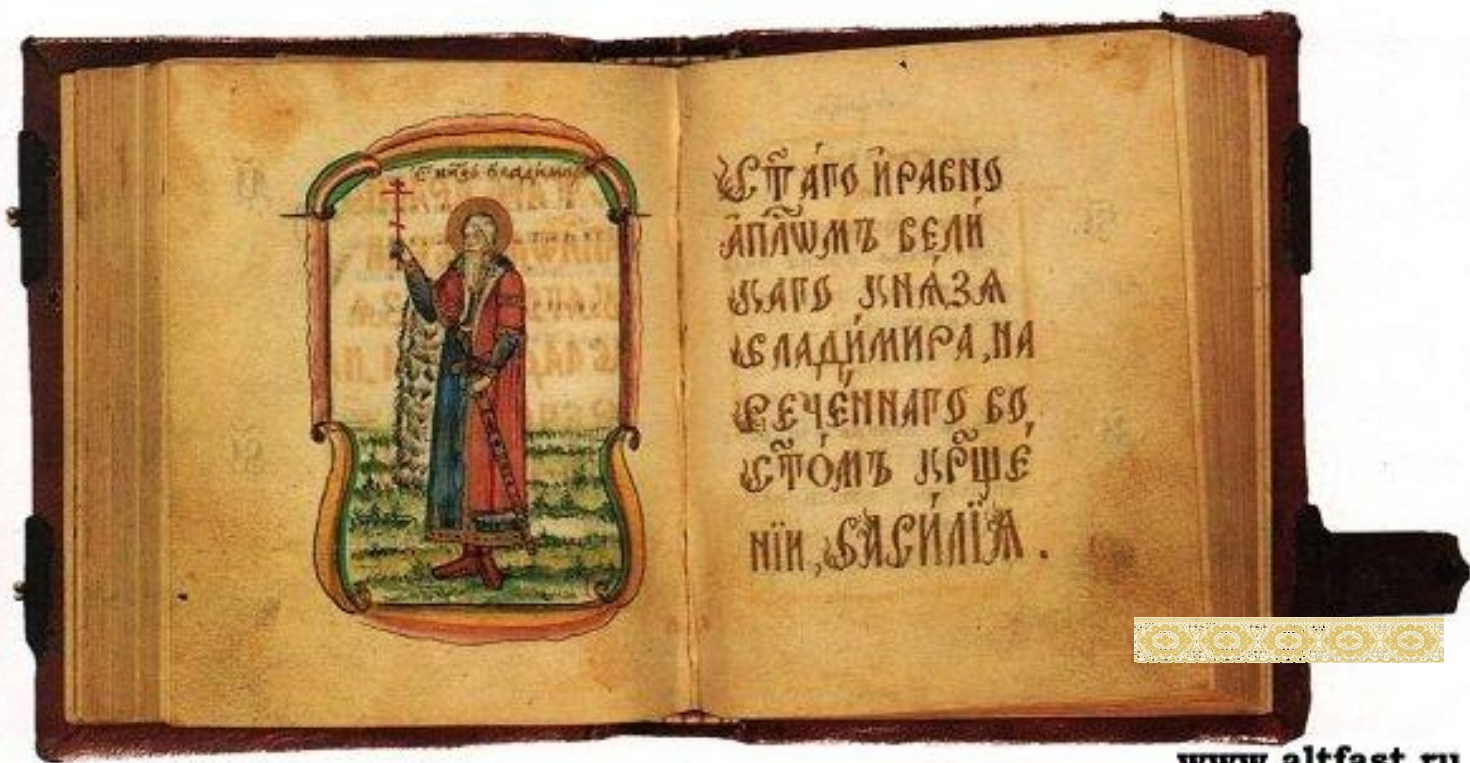 С кнзь владимиръ
Ст҃а́го и҆ равно
а҆пⷭ҇лѡмъ вели́
каго кнѧ́зѧ
владѝмира, на
рече́ннаго во
ст҃о́мъ кр҃ще́
нїи, васи́лїѧ.
www.altfast.ru